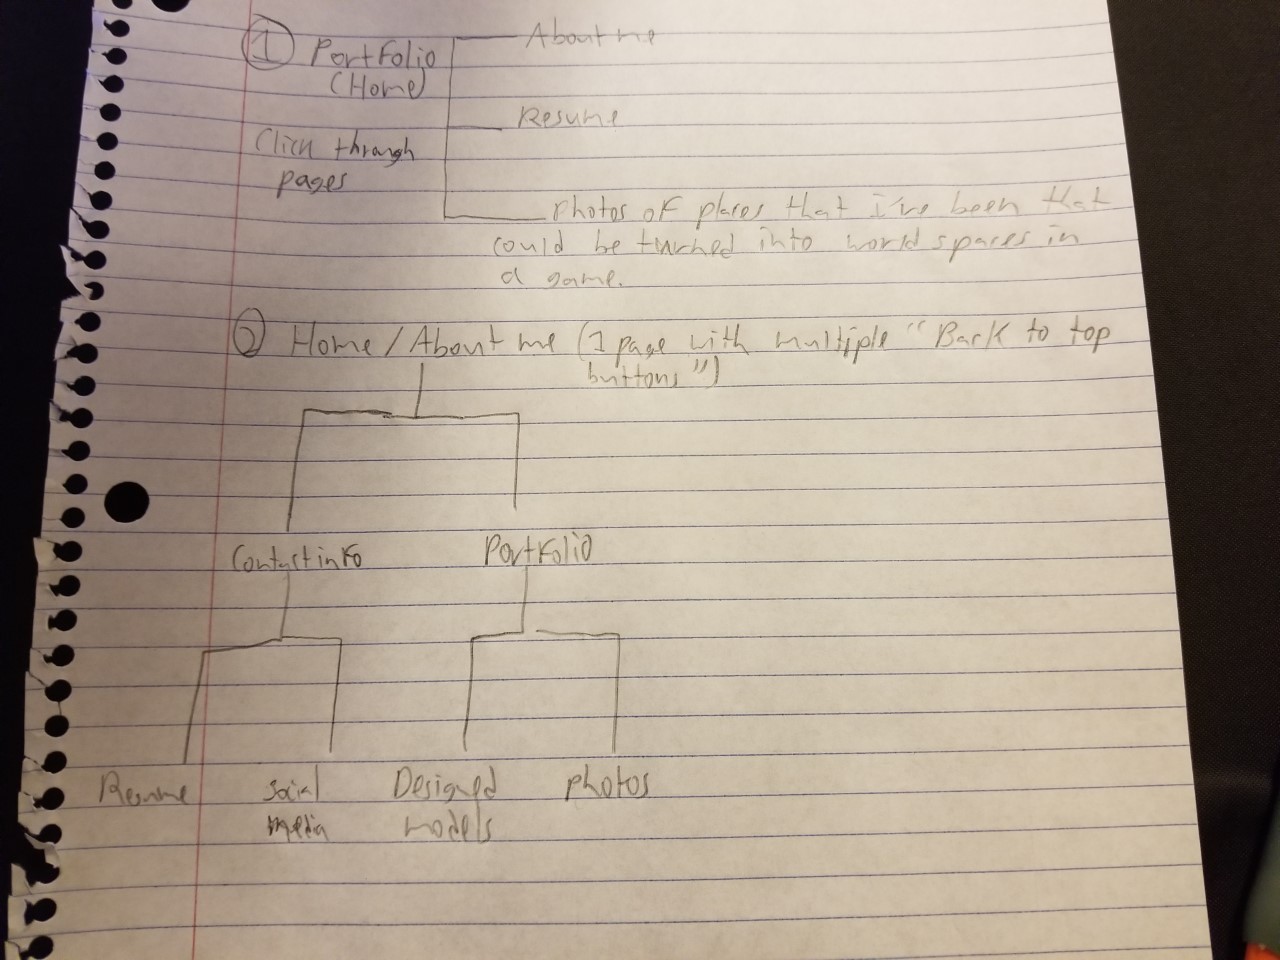 1 Portfolio
(Home)
About me
Resume
Click through
pages
Photos of places that i've been that
could be turned into world spaces in
a game.
2 Home / About me (1 page with multiple "Back to top
buttons")
Contact info
Portfolio
Resume
Social
media
Designed
models
photos